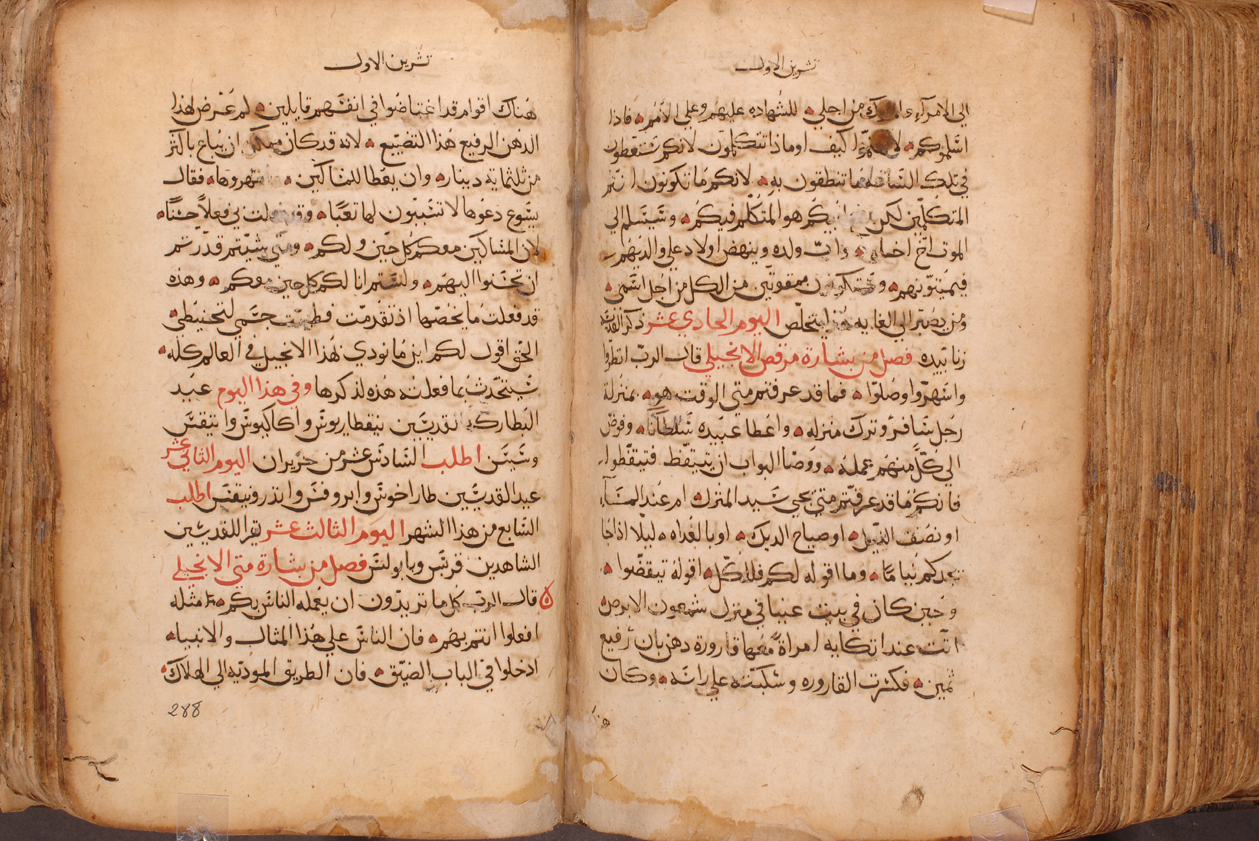 تشرين الاول
الى الامرآء و من اجلي للشهاده عليهم وعلى الامم فاذا
اسلموكم كيف او ماذا تتكلمون لانكم ستعطون
في تلك الساعه ما تنطقون به لانكم ما تكونون انتم
المتكلمين لكن هو المتكلم فيكم وسيسلم الى
الموت اخ اخاه واب ولده وينهض اولاد على والديهم
فيميتونهم وستكونون ممقوتين من الكل من اجل اسمي
ومن يصبر الى الغايه هذا يتخلص اليوم الحادي عشر ذكر القديسه
زناييده فصل من بشارة مرقص الانجيلي قال الرب انظروا
واسهروا وصلوا فما قد عرفتم متى الوقت هو بمنزلة
رجل سافر وترك منزله واعطا عبيده سلطانًا وفوض
الى كل منهم عمله ووصا البواب ان يتيقظ فتيقظوا
فانكم ما قد عرفتم متى يجي سيد المنزل ام عند المسآء
او نصف الليل او صياح الديك او بالغداه ليلا اذا جا
يجدكم نيامًا وما اقوله لكم فللكل اقوله تيقضوا
وحين كان في بيت عنيا في منزل شمعون الابرص
اتت عند اتكايه امراة معها قاروره دهن بان رفيع
ثمين فكسرت القاروره وسكبته على راسه وكان
هنا
تشرين الاول
هناك اقوام قد اغتاضوا في انفسهم قايلين لم عرض لهذا
الدهن الرفيع هذا التضييع لانه قد كان ممكن ان يباع باكثر
من ثلثمايه دينار وان يعطا للمساكين وانتهروها فقال
يسوع دعوها لا تسببون لها تعبًا وقد فعلت بي فعلًا حسنًا
لان المساكين معكم كل حين ولكم ومتى شيتم قدرتم
ان تحسنوا اليهم ولستم انا لكم كل حين معكم وهذه
قد فعلت ما يخصها اذ تقدمت فطيبت جسمي لتحنيطي
الحق اقول لكم اين ما نودي بهذا الانجيل في العالم كله
سيتحدث بما فعلته هذه لذكرها وفي هذا اليوم عيد
البطاركه القديسين نيقطاريوش واكاكيوش وانيقتس
وسيسن اطلب السادس عشر من حزيران اليوم الثاني عشر
عيد القديسين طاراخوس وابروفس واندرونيقس اطلب
السابع من هذا الشهر اليوم الثالث عشر تقرا للقديسين
الشاهدين قربس وبابولس فصل من بشارة متى الانجيلي
قال الرب كل ما تريدون ان يعمله الناس بكم مثله
افعلوا انتم بهم فان الناس على هذا المثال والانبياء
ادخلوا في الباب الضيق فان الطريق الموديه الى الهلاك
288